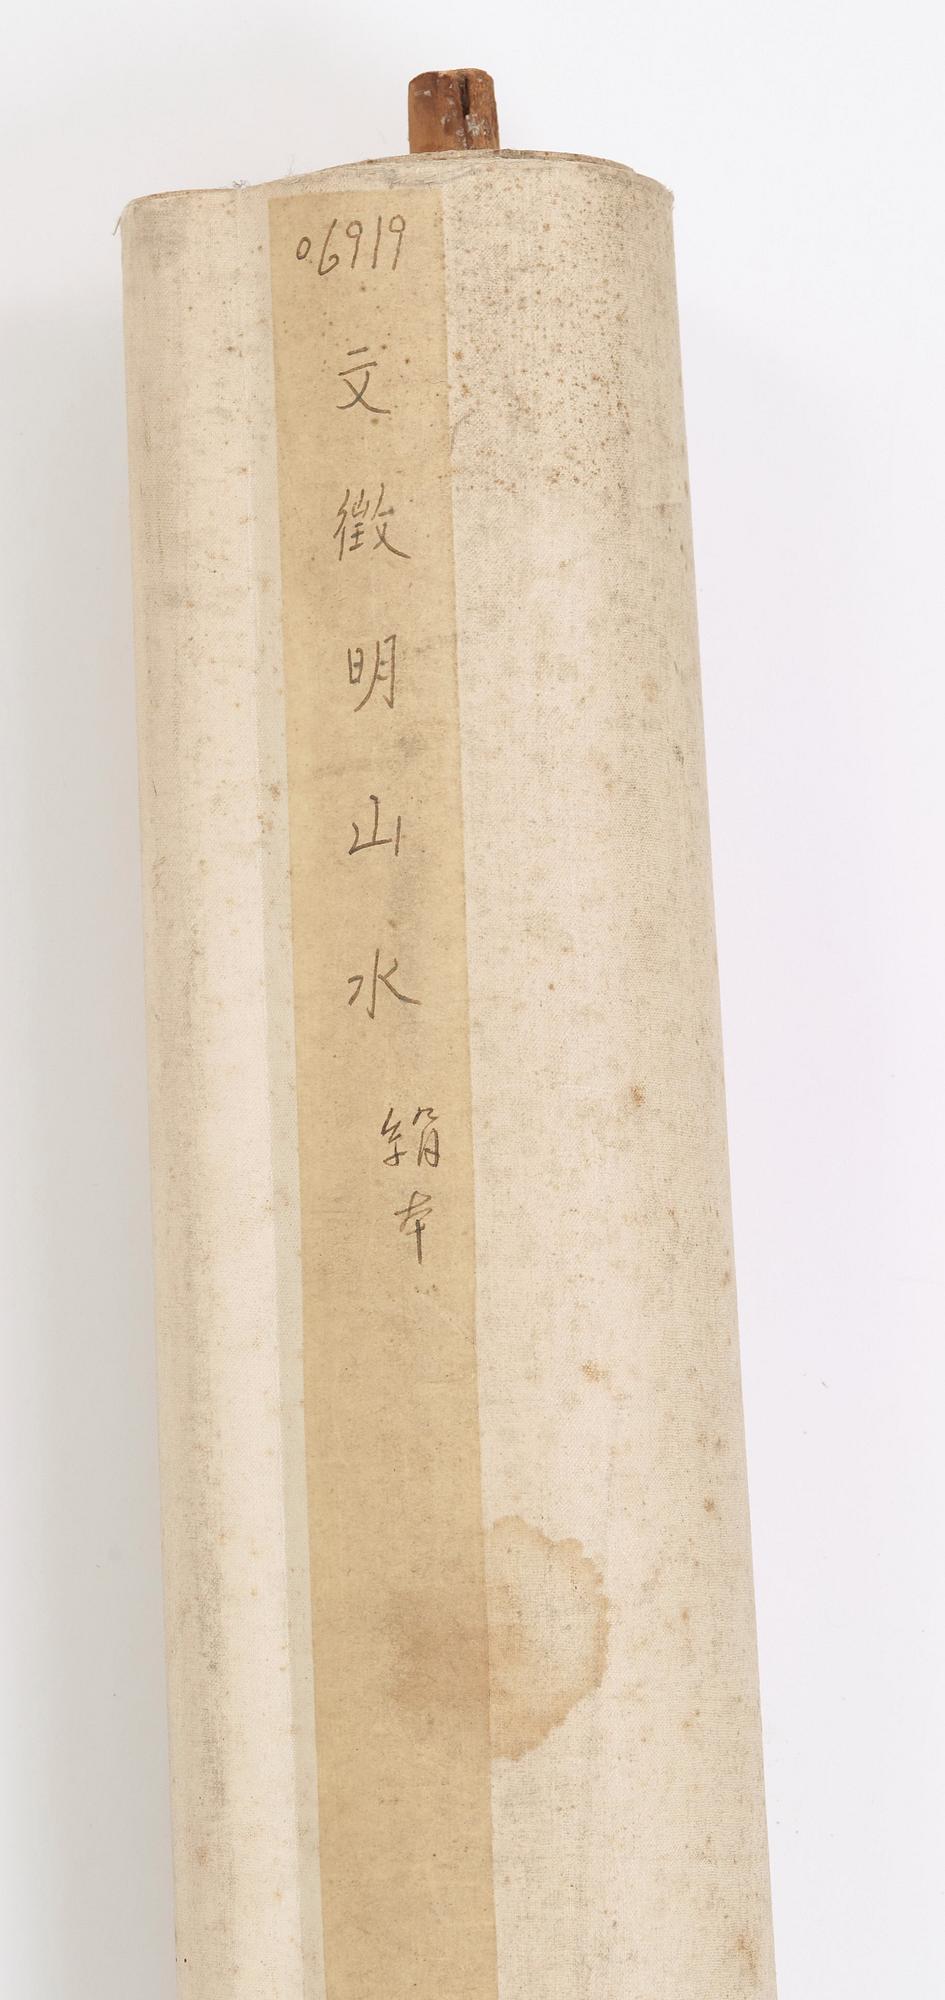 06919
文徵明山水
絹本